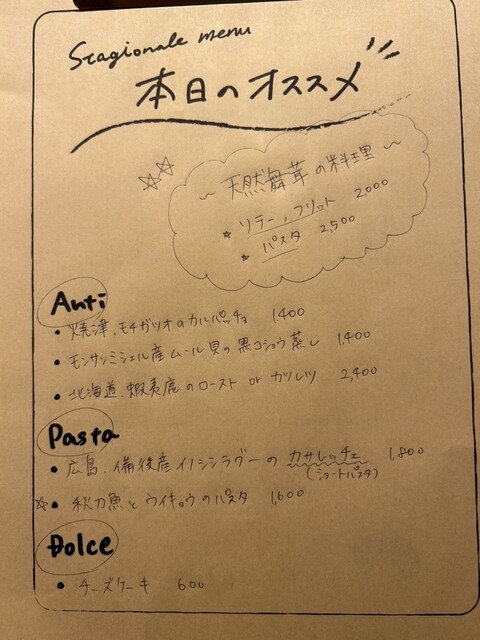 Stagionale menu
本日のオススメ
〜 天然舞茸の料理 〜
ソテー, フリット 2,000
パスタ 2,500
Anti
焼津.モチガツオのカルパッチョ 1,400
モンサンミシェル産ムール貝の黒コショウ蒸し 1,400
北海道.蝦夷鹿のロースト or カツレツ 2,400
Pasta
広島.備後産イノシシラグーのカサレッチェ 1,800
(ショートパスタ)
秋刀魚とウイキョウのパスタ 1,600
Dolce
チーズケーキ 600